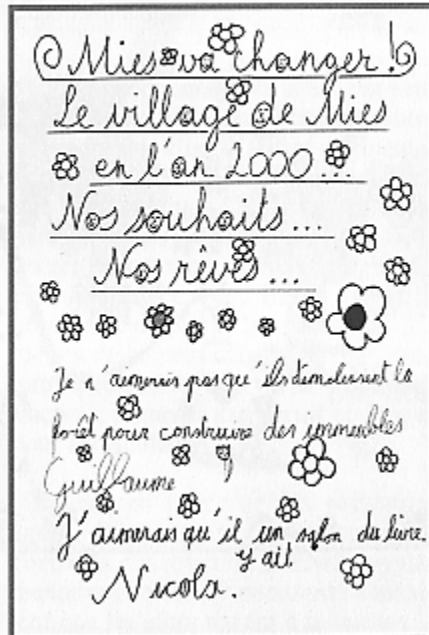 Mies va changer !
Le village de Mies
en l'an 2000...
Nos souhaits...
Nos rêves...
Je n'aimerais pas qu'ils demolissent la
forêt pour construire des immeubles
Guillaume
J'aimerais qu'il un salon du livre.
y ait
Nicola.